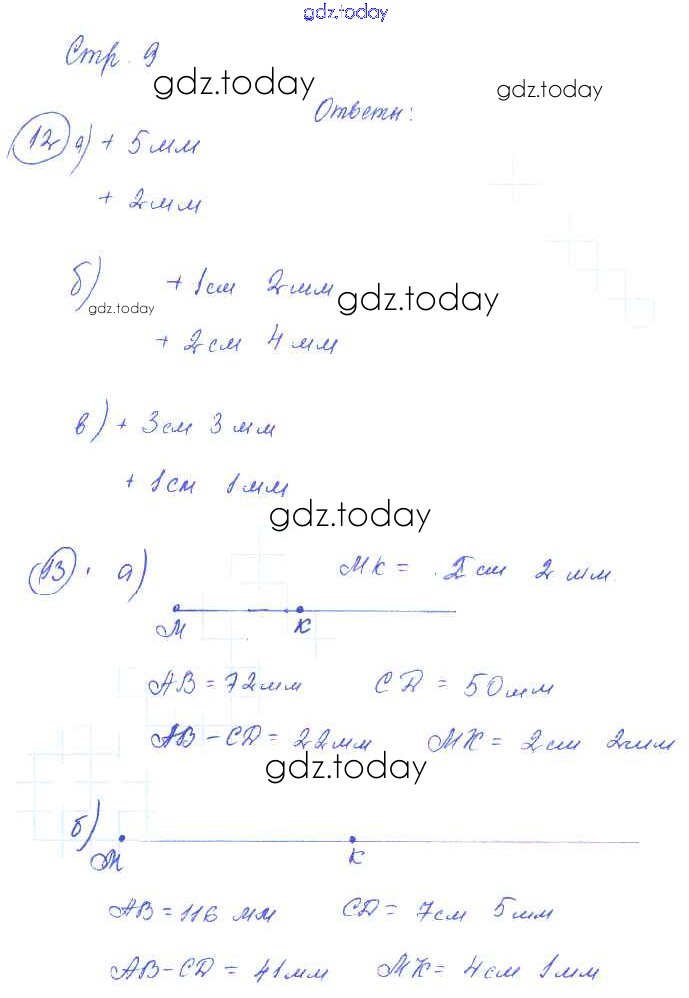 gdz.today
Стр. 9
gdz.today gdz.today
Ответы:
12 а) + 5 мм
+ 2 мм
б) + 1 см 2 мм
gdz.today gdz.today
+ 2 см 4 мм
в) + 3 см 3 мм
+ 1 см 1 мм
gdz.today
13. а) МК = 2 см 2 мм.
М К
АВ = 72 мм CD = 50 мм
АВ - CD = 22 мм МК = 2 см 2 мм
gdz.today
б)
М К
АВ = 116 мм CD = 7 см 5 мм
АВ - CD = 41 мм МК = 4 см 1 мм